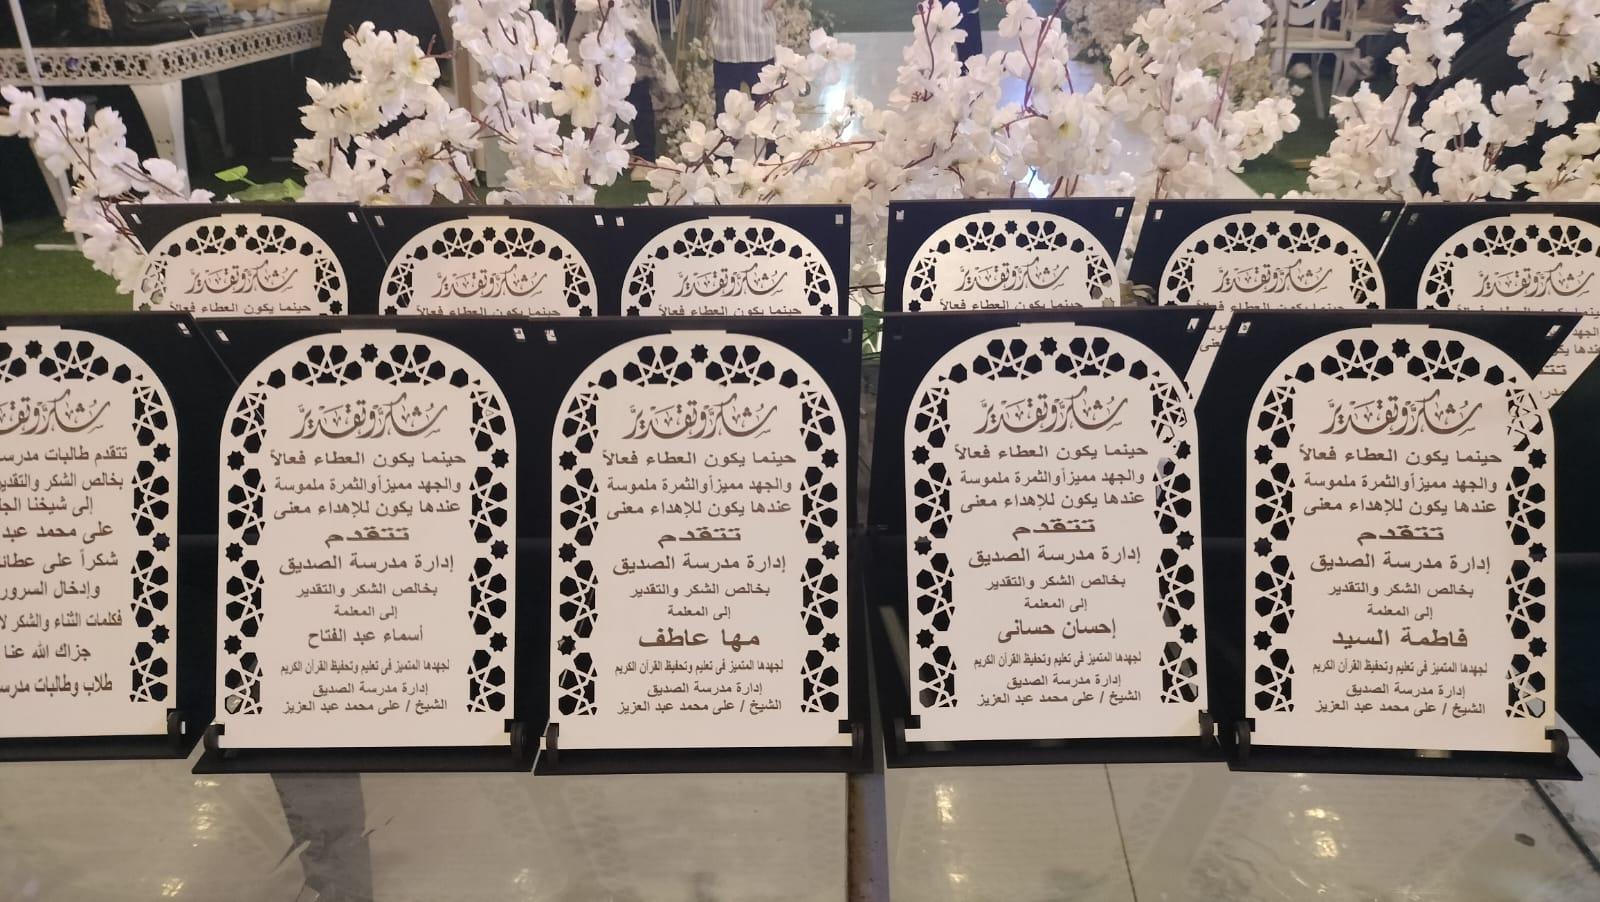 شكر وتقدير
حينما يكون العطاء فعالاً
شكر وتقدير
حينما يكون العطاء فعالاً
شكر وتقدير
حينما يكون العطاء فعالاً
شكر وتقدير
حينما يكون العطاء فعالاً
شكر وتقدير
حينما يكون العطاء فعالاً
شكر وتقدير
تتقدم طالبات
بخالص الشكر والتقدير
إلى شيخنا
على محمد عبد
شكراً على
وإدخال السرور
فكلمات الثناء والشكر
جزاك الله عنا
طلاب وطالبات
شكر وتقدير
حينما يكون العطاء فعالاً
والجهد مميزأوالثمرة ملموسة
عندها يكون للإهداء معنى
تتقدم
إدارة مدرسة الصديق
بخالص الشكر والتقدير
إلى المعلمة
أسماء عبد الفتاح
لجهدها المتميز فى تعليم وتحفيظ القرآن الكريم
إدارة مدرسة الصديق
الشيخ / على محمد عبد العزيز
شكر وتقدير
حينما يكون العطاء فعالاً
والجهد مميزأوالثمرة ملموسة
عندها يكون للإهداء معنى
تتقدم
إدارة مدرسة الصديق
بخالص الشكر والتقدير
إلى المعلمة
مها عاطف
لجهدها المتميز فى تعليم وتحفيظ القرآن الكريم
إدارة مدرسة الصديق
الشيخ / على محمد عبد العزيز
شكر وتقدير
حينما يكون العطاء فعالاً
والجهد مميزأوالثمرة ملموسة
عندها يكون للإهداء معنى
تتقدم
إدارة مدرسة الصديق
بخالص الشكر والتقدير
إلى المعلمة
إحسان حسانى
لجهدها المتميز فى تعليم وتحفيظ القرآن الكريم
إدارة مدرسة الصديق
الشيخ / على محمد عبد العزيز
شكر وتقدير
حينما يكون العطاء فعالاً
والجهد مميزأوالثمرة ملموسة
عندها يكون للإهداء معنى
تتقدم
إدارة مدرسة الصديق
بخالص الشكر والتقدير
إلى المعلمة
فاطمة السيد
لجهدها المتميز فى تعليم وتحفيظ القرآن الكريم
إدارة مدرسة الصديق
الشيخ / على محمد عبد العزيز